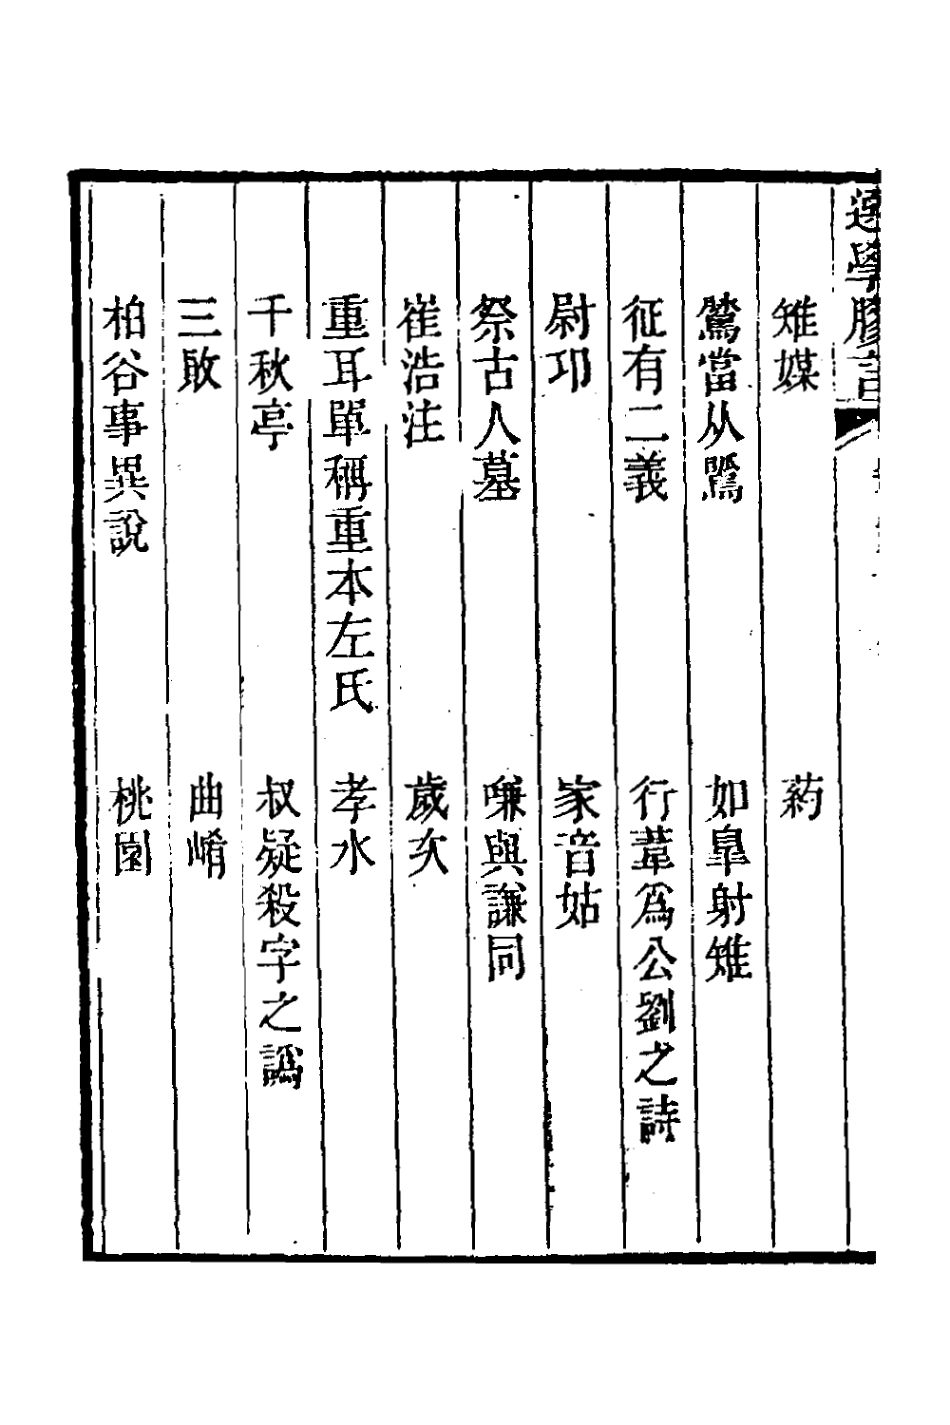 選學膠言
雉媒　葯
鷩當从鷖　如皐射雉
征有二義　行葦爲公劉之詩
尉邛　家音姑
祭古人墓　嗛與謙同
崔浩注　歲次
重耳單稱重本左氏　孝水
千秋亭　叔疑殺字之譌
三敗　曲崤
柏谷事異說　桃園